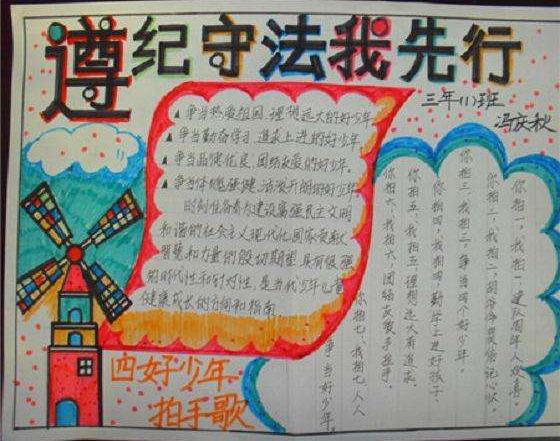 遵纪守法我先行
三年(1)班
冯庆秋
▲争当热爱祖国、理想远大的好少年
▲争当勤奋学习、追求上进的好少年
▲争当品德优良、团结友爱的好少年。
▲争当体魄强健、活泼开朗的好少年
时刻准备着为建设富强民主文明
和谐的社会主义现代化国家贡献
智慧和力量的殷切期望,具有很强
的时代性和针对性,是当代少年儿童
健康成长的方向和指南
你拍一,我拍一,建队周年人欢喜。
你拍二,我拍二,
你拍三,我拍三,争当四个好少年。
你拍四,我拍四,勤学上进好孩子。
你拍五,我拍五,理想远大有追求。
你拍六,我拍六,团结友爱手拉手。
你拍七,我拍七,人人
争当好少年。
四好少年
拍手歌